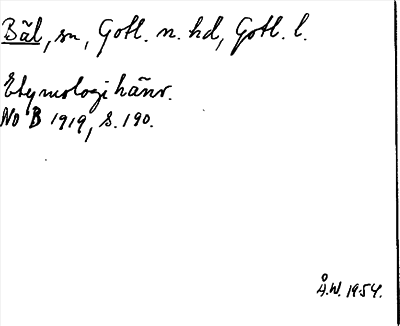 Bäl, sn, Gotl. n. hd, Gotl. l.
Etymologi hänv.
NoB 1919, s. 190.
Å.W. 1954.